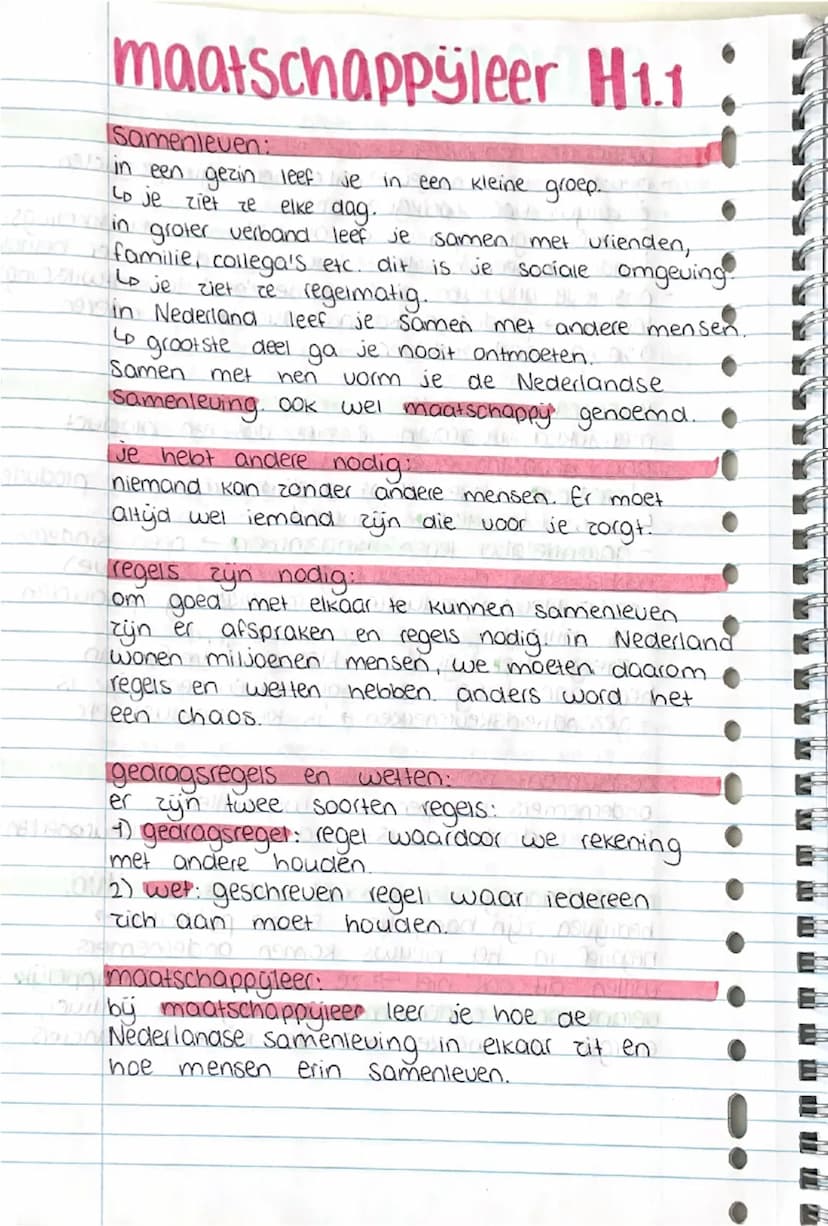 maatschappijleer H1.1
samenleven:
in een gezin leef je in een kleine groep.
↳ je ziet ze elke dag.
in groter verband leef je samen met vrienden,
familie, collega's etc. dit is je sociale omgeving
↳ je ziet ze regelmatig.
in Nederland leef je samen met andere mensen.
↳ grootste deel ga je nooit ontmoeten.
samen met hen vorm je de Nederlandse
samenleving. ook wel maatschappij genoemd.
je hebt andere nodig:
niemand kan zonder andere mensen. Er moet
altijd wel iemand zijn die voor je zorgt.
regels zijn nodig:
om goed met elkaar te kunnen samenleven
zijn er afspraken en regels nodig. in Nederland
wonen miljoenen mensen, we moeten daarom
regels en wetten hebben. anders word het
een chaos.
gedragsregels en wetten:
er zijn twee soorten regels:
1) gedragsregel: regel waardoor we rekening
met andere houden.
2) wet: geschreven regel waar iedereen
zich aan moet houden.
maatschappijleer:
bij maatschappijleer leer je hoe de
Nederlandse samenleving in elkaar zit en
hoe mensen erin samenleven.